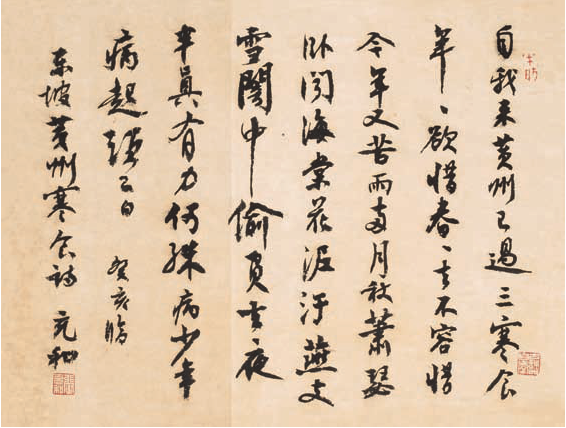 自我来黄州已過三寒食
年〻欲惜春〻去不容惜
今年又苦雨两月秋蕭瑟
卧聞海棠花泥汙燕支
雪闇中偷負去夜
半真有力何殊病少年
病起頭已白 癸亥臨
東坡黄州寒食詩 元和